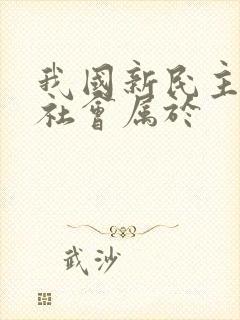 我國新民主
社會属於
武沙